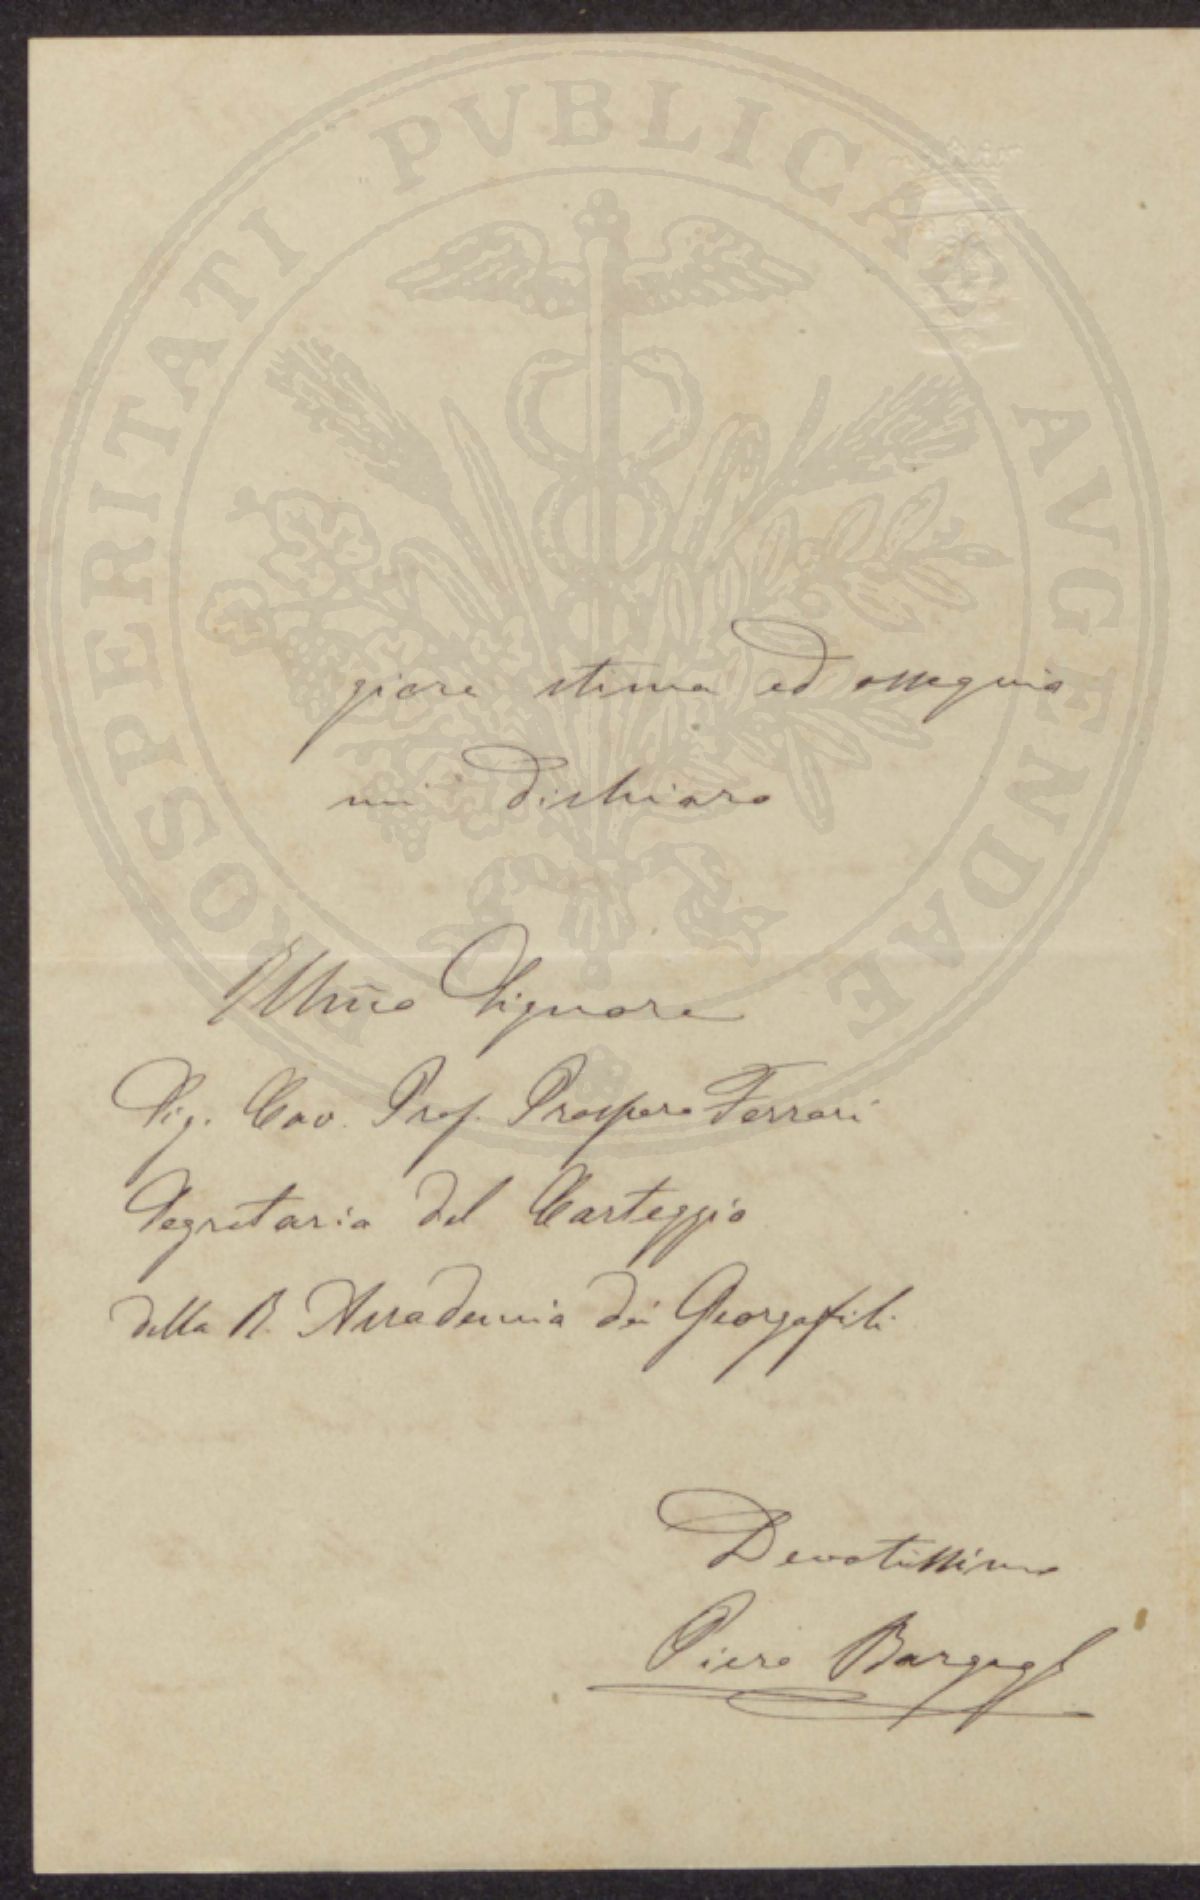 PROSPERITATI PVBLICAE AVGENDAE
giore stima ed ossequio
mi dichiaro
Illmo Signore
Sig. Cav. Prof. Prospero Ferrari
Segretario del Carteggio
della R. Accademia dei Georgofili
Devotissimo
Piero Bargagli